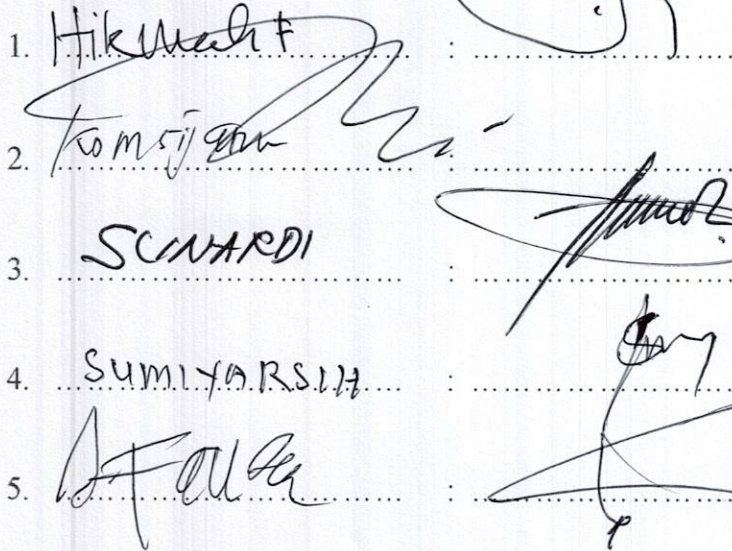 1. Hikmah F :
2. Komsijam :
3. SUNARDI :
4. SUMIYARSIH :
5. :